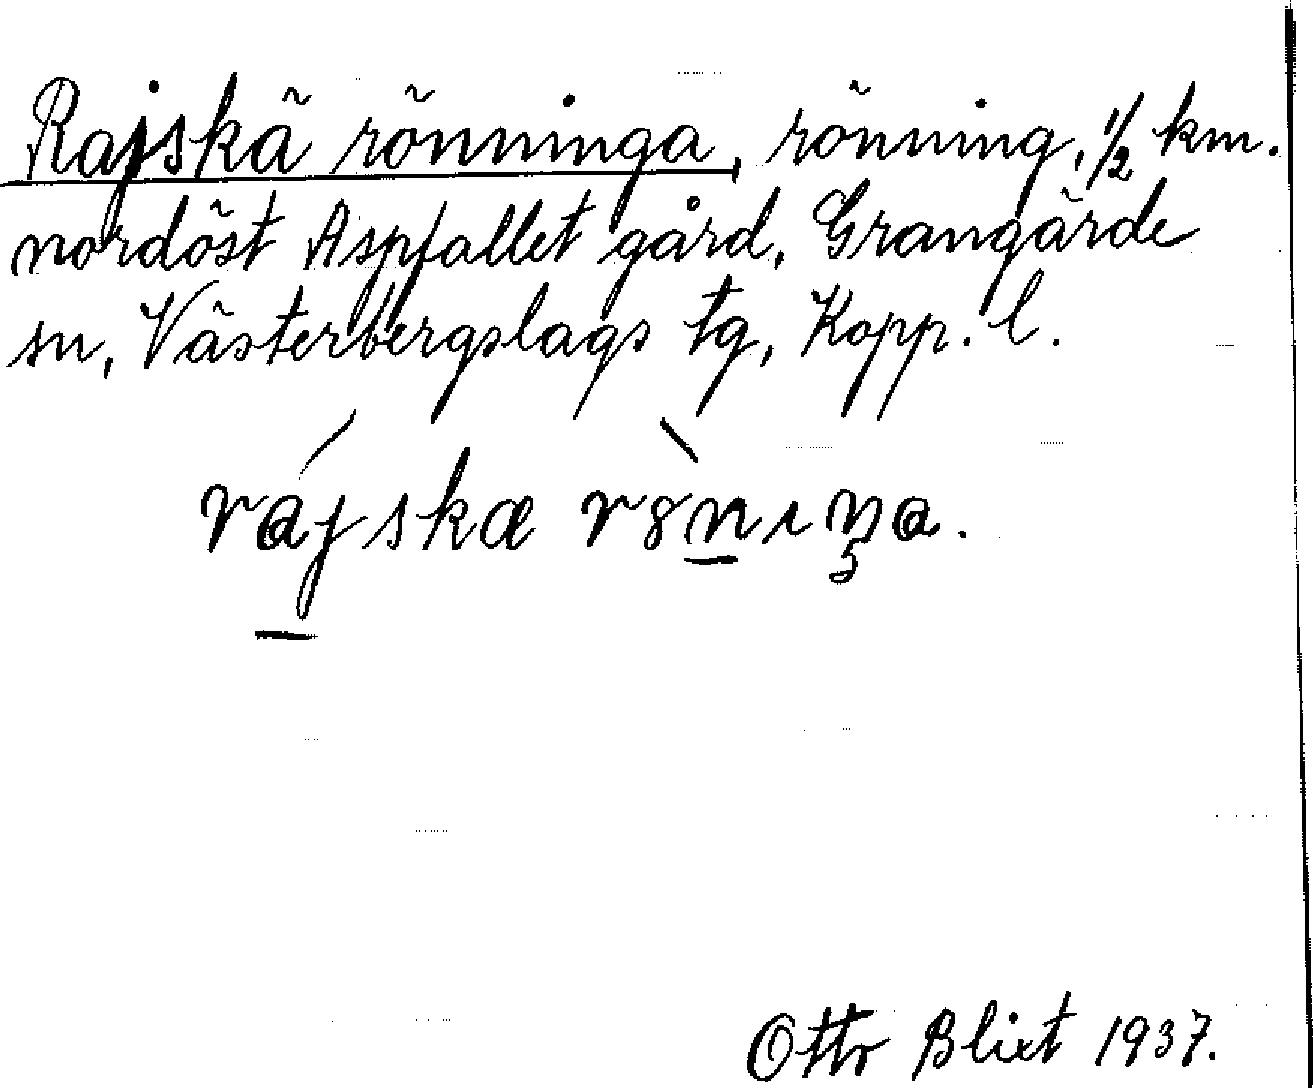 Rajskä rönninga, rönning, 1/2 km.
nordöst Aspfallet gård, Grangärde
sn, Västerbergslags tg, Kopp. l.
rájska r8̀nıŋa.
Otto Blixt 1937.